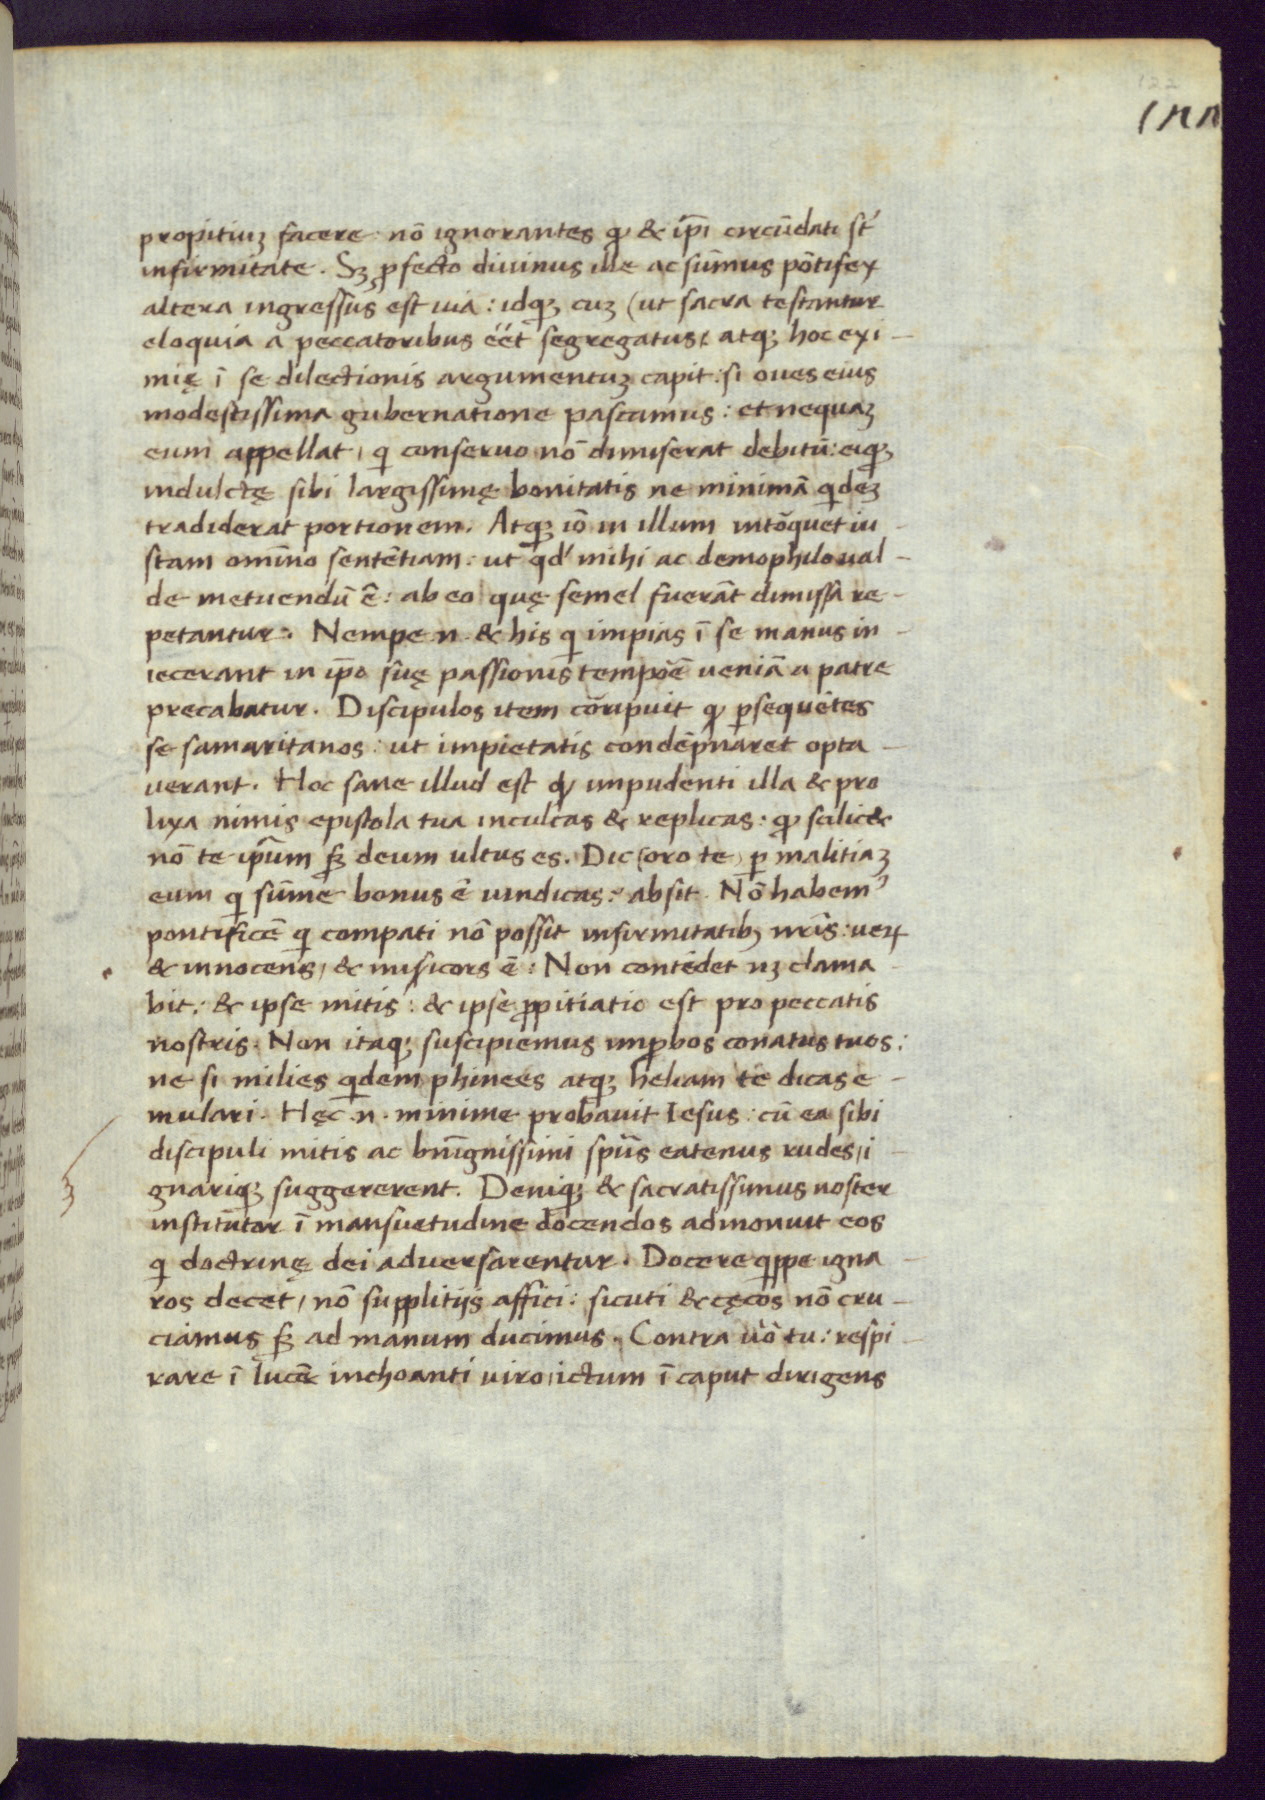 122
propitiuȝ facere nō ignorantes ꝙ & ip̄i circūdati st́
infirmitate. Sȝ ꝓfecto diuinus ille ac sūmus pōtifex
altera ingressus est uia: idqȝ cuȝ (ut sacra testantur
eloquia a peccatoribus eēt segregatus, atqȝ hoc exi-
mię ī se dilectionis argumentuȝ capit: si oues eius
modestissima gubernatione pascamus: et nequaȝ
eum appellat, qi conseruo nō dimiserat debitū: eiqȝ
indulctę sibi largissimę bonitatis ne minimā qideȝ
tradiderat portionem. Atqȝ iō in illum intōquet iu-
stam omīno sentētiam: ut qd' mihi ac demophilo ual-
de metuendū ē: ab eo quę semel fuerāt dimissa re-
petantur. Nempe .n. & his qi impias ī se manus in-
iecerant in ip̄o suę passionis tempoē ueniā a patre
precabatur. Discipulos item cōripuit ꝙ ꝑsequētes
se samaritanos: ut impietatis condēpnaret opta-
uerant. Hoc sane illud est ꝙ impudenti illa & pro
lixa nimis epistola tua inculcas & replicas: ꝙ scilic&
nō te ip̄um sȝ deum ultus es. Dic (oro te) ꝑ malitiaȝ
eum qi sūme bonus ē uindicas: absit. Nō habem⁹
pontificē qi compati nō possit infirmitatibȝ nr̄is: ueꝝ
& innocens, & misicors ē: Non contēdet nȝ clama-
bit: & ipse mitis: & ipse ꝓpitiatio est pro peccatis
nostris. Non itaqȝ suscipiemus imꝓbos conatus tuos:
ne si milies qidem phinees atqȝ heliam te dicas e-
mulari. Hęc .n. minime probauit Iesus: cū ea sibi
discipuli mitis ac bn̄ignissimi sp̄us eatenus rudes, i-
gnariqȝ suggererent. Deniqȝ & sacratissimus noster
institutor ī mansuetudine docendos admonuit eos
qi doctrinę dei aduersarentur. Docere qippe igna-
ros decet, nō supplitijs affici: sicuti & cęcos nō cru-
ciamus sȝ ad manum ducimus. Contra u̇ō tu: respi-
rare ī lucē inchoanti uiro, ictum ī caput dirigens